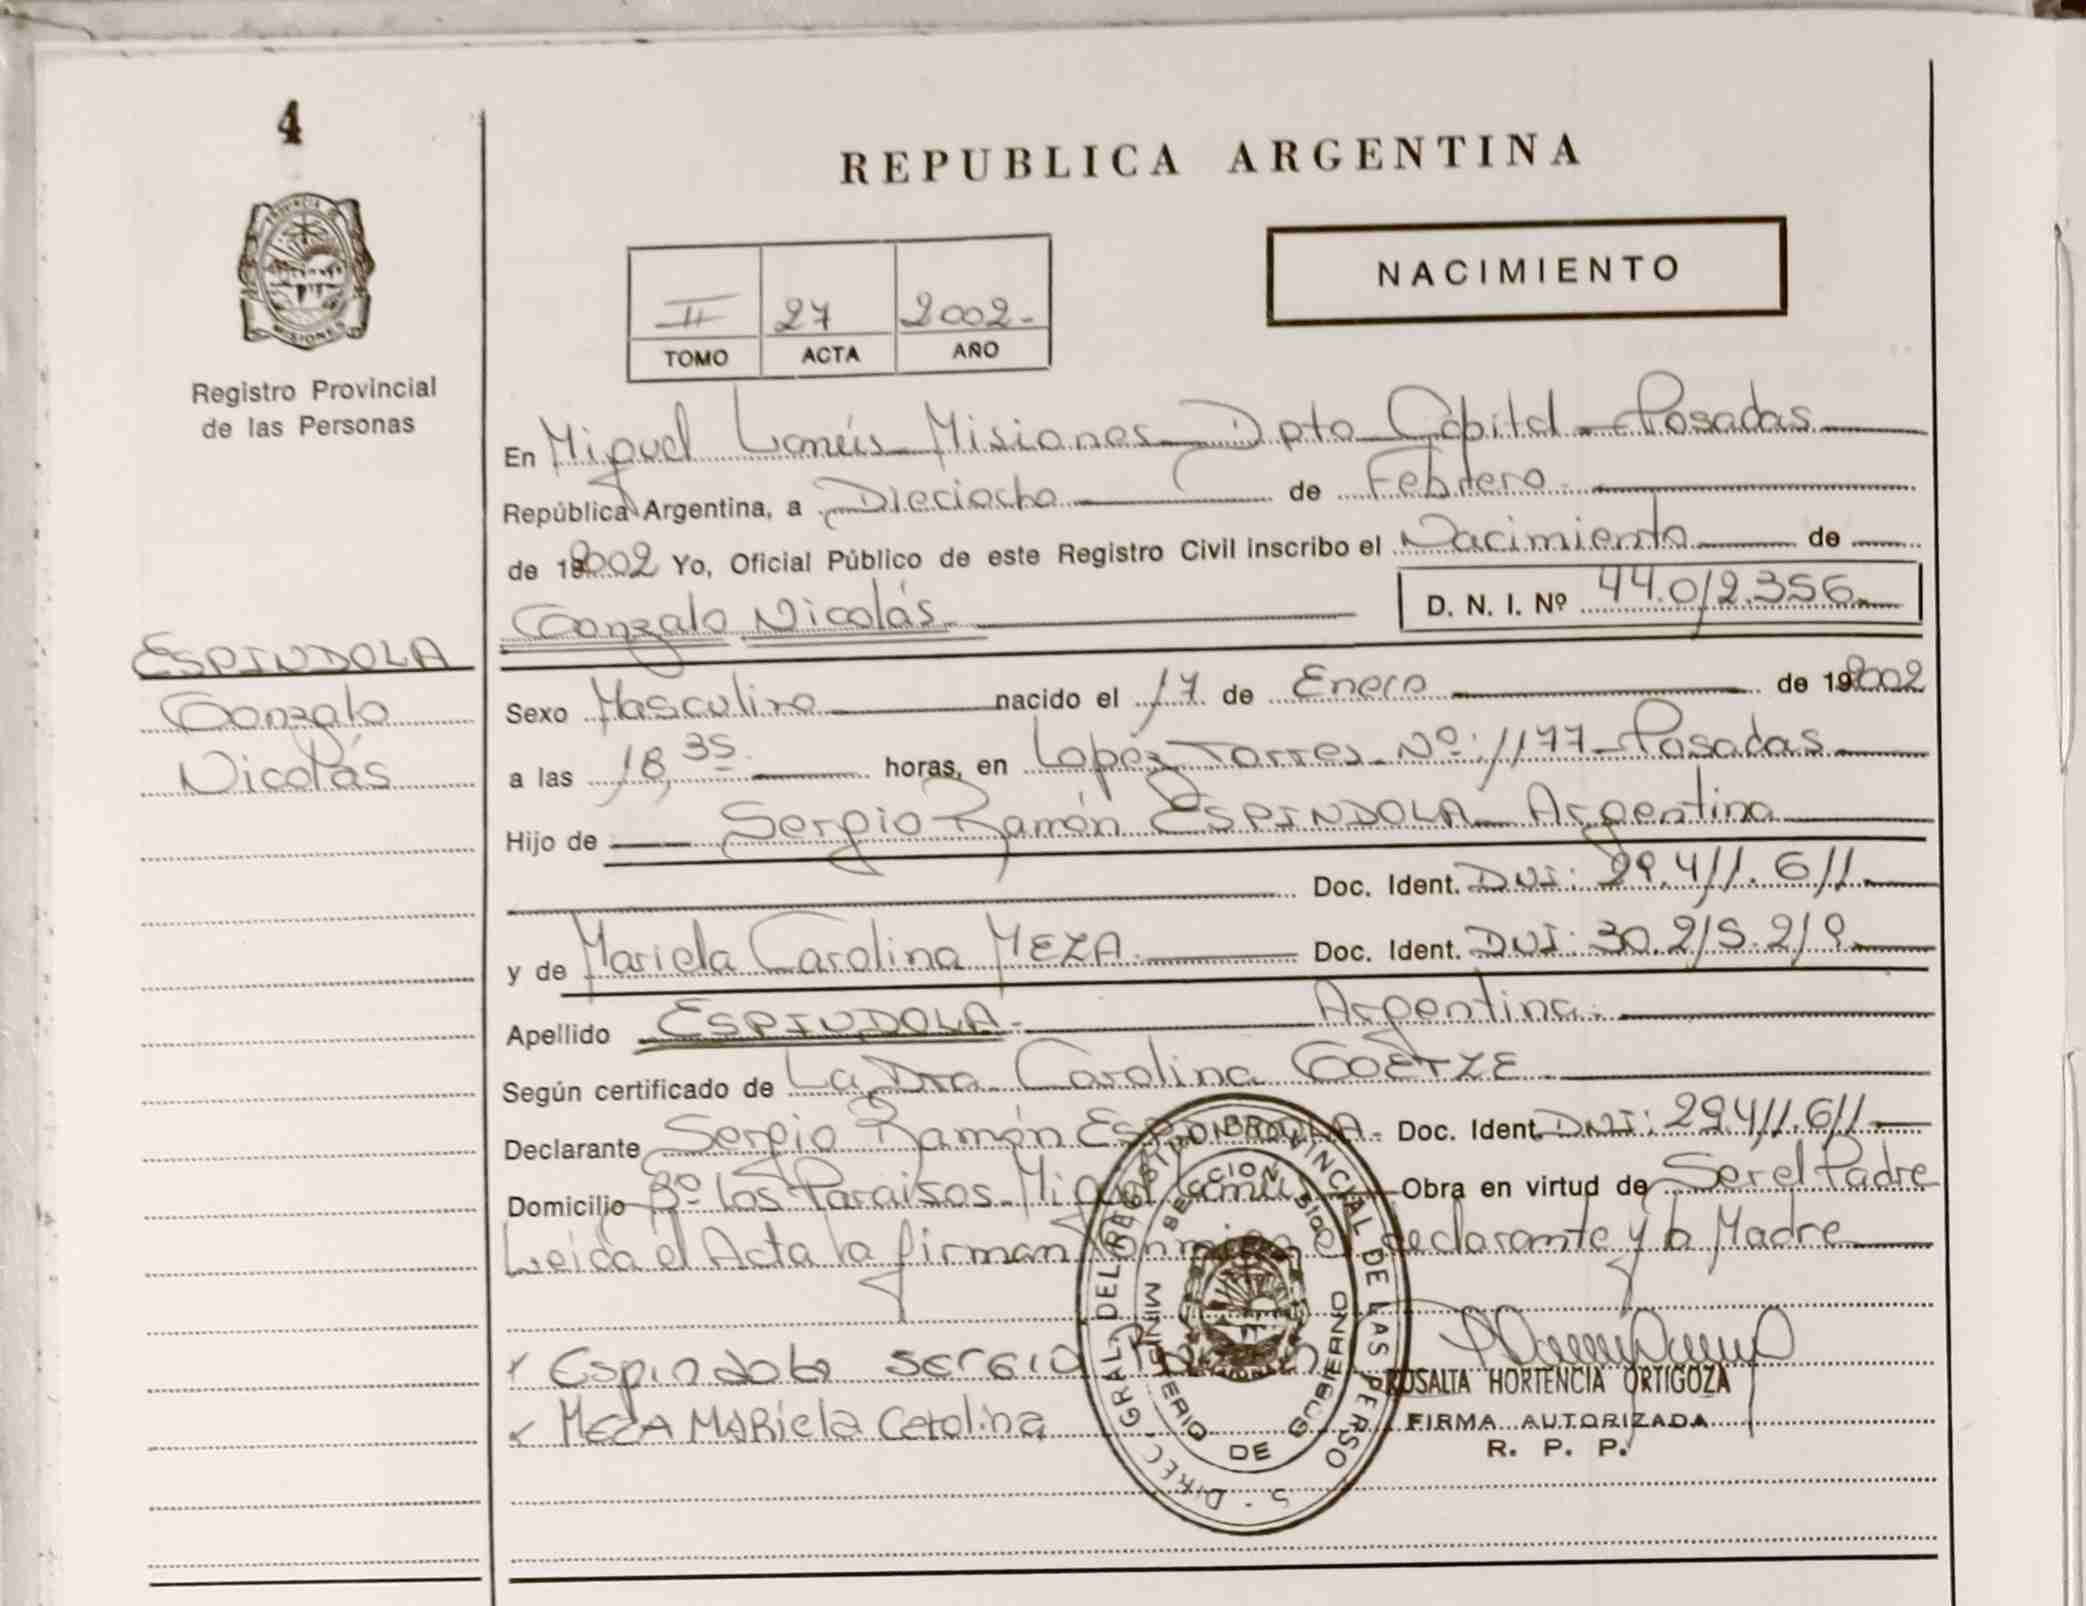 4
REPUBLICA ARGENTINA
NACIMIENTO
II 27 2002-
TOMO ACTA AÑO
PROVINCIA DE
MISIONES
Registro Provincial
de las Personas
En Miguel Lanús Misiones Dpto Capital - Posadas
República Argentina, a Dieciocho de Febrero
de 2002 Yo, Oficial Público de este Registro Civil inscribo el Nacimiento de
Gonzalo Nicolás D. N. I. Nº 44.012.356
ESPINDOLA
Gonzalo
Nicolás
Sexo Masculino nacido el 17 de Enero de 2002
a las 18,35 horas, en Lopéz Torres Nº: 1177 - Posadas
Hijo de Sergio Ramón ESPINDOLA Argentino
Doc. Ident. DNI: 29.411.611
y de Mariela Carolina MEZA Doc. Ident. DNI: 30.215.219
Apellido ESPINDOLA- Argentina.
Según certificado de La Dra Carolina GOETZE
Declarante Sergio Ramón ESPINDOLA- Doc. Ident. DNI: 29.411.611
Domicilio Bº Los Paraisos - Miguel Lanús Obra en virtud de Ser el Padre
Leida el Acta la firman Conmigo el declarante y la Madre
x Espindola SERGIO
ROSALIA HORTENCIA ORTIGOZA
x MEZA MARiela Carolina
FIRMA AUTORIZADA
R. P. P.
DIREC. GRAL. DEL REGISTRO PROVINCIAL DE LAS PERSONAS
MINISTERIO DE GOBIERNO